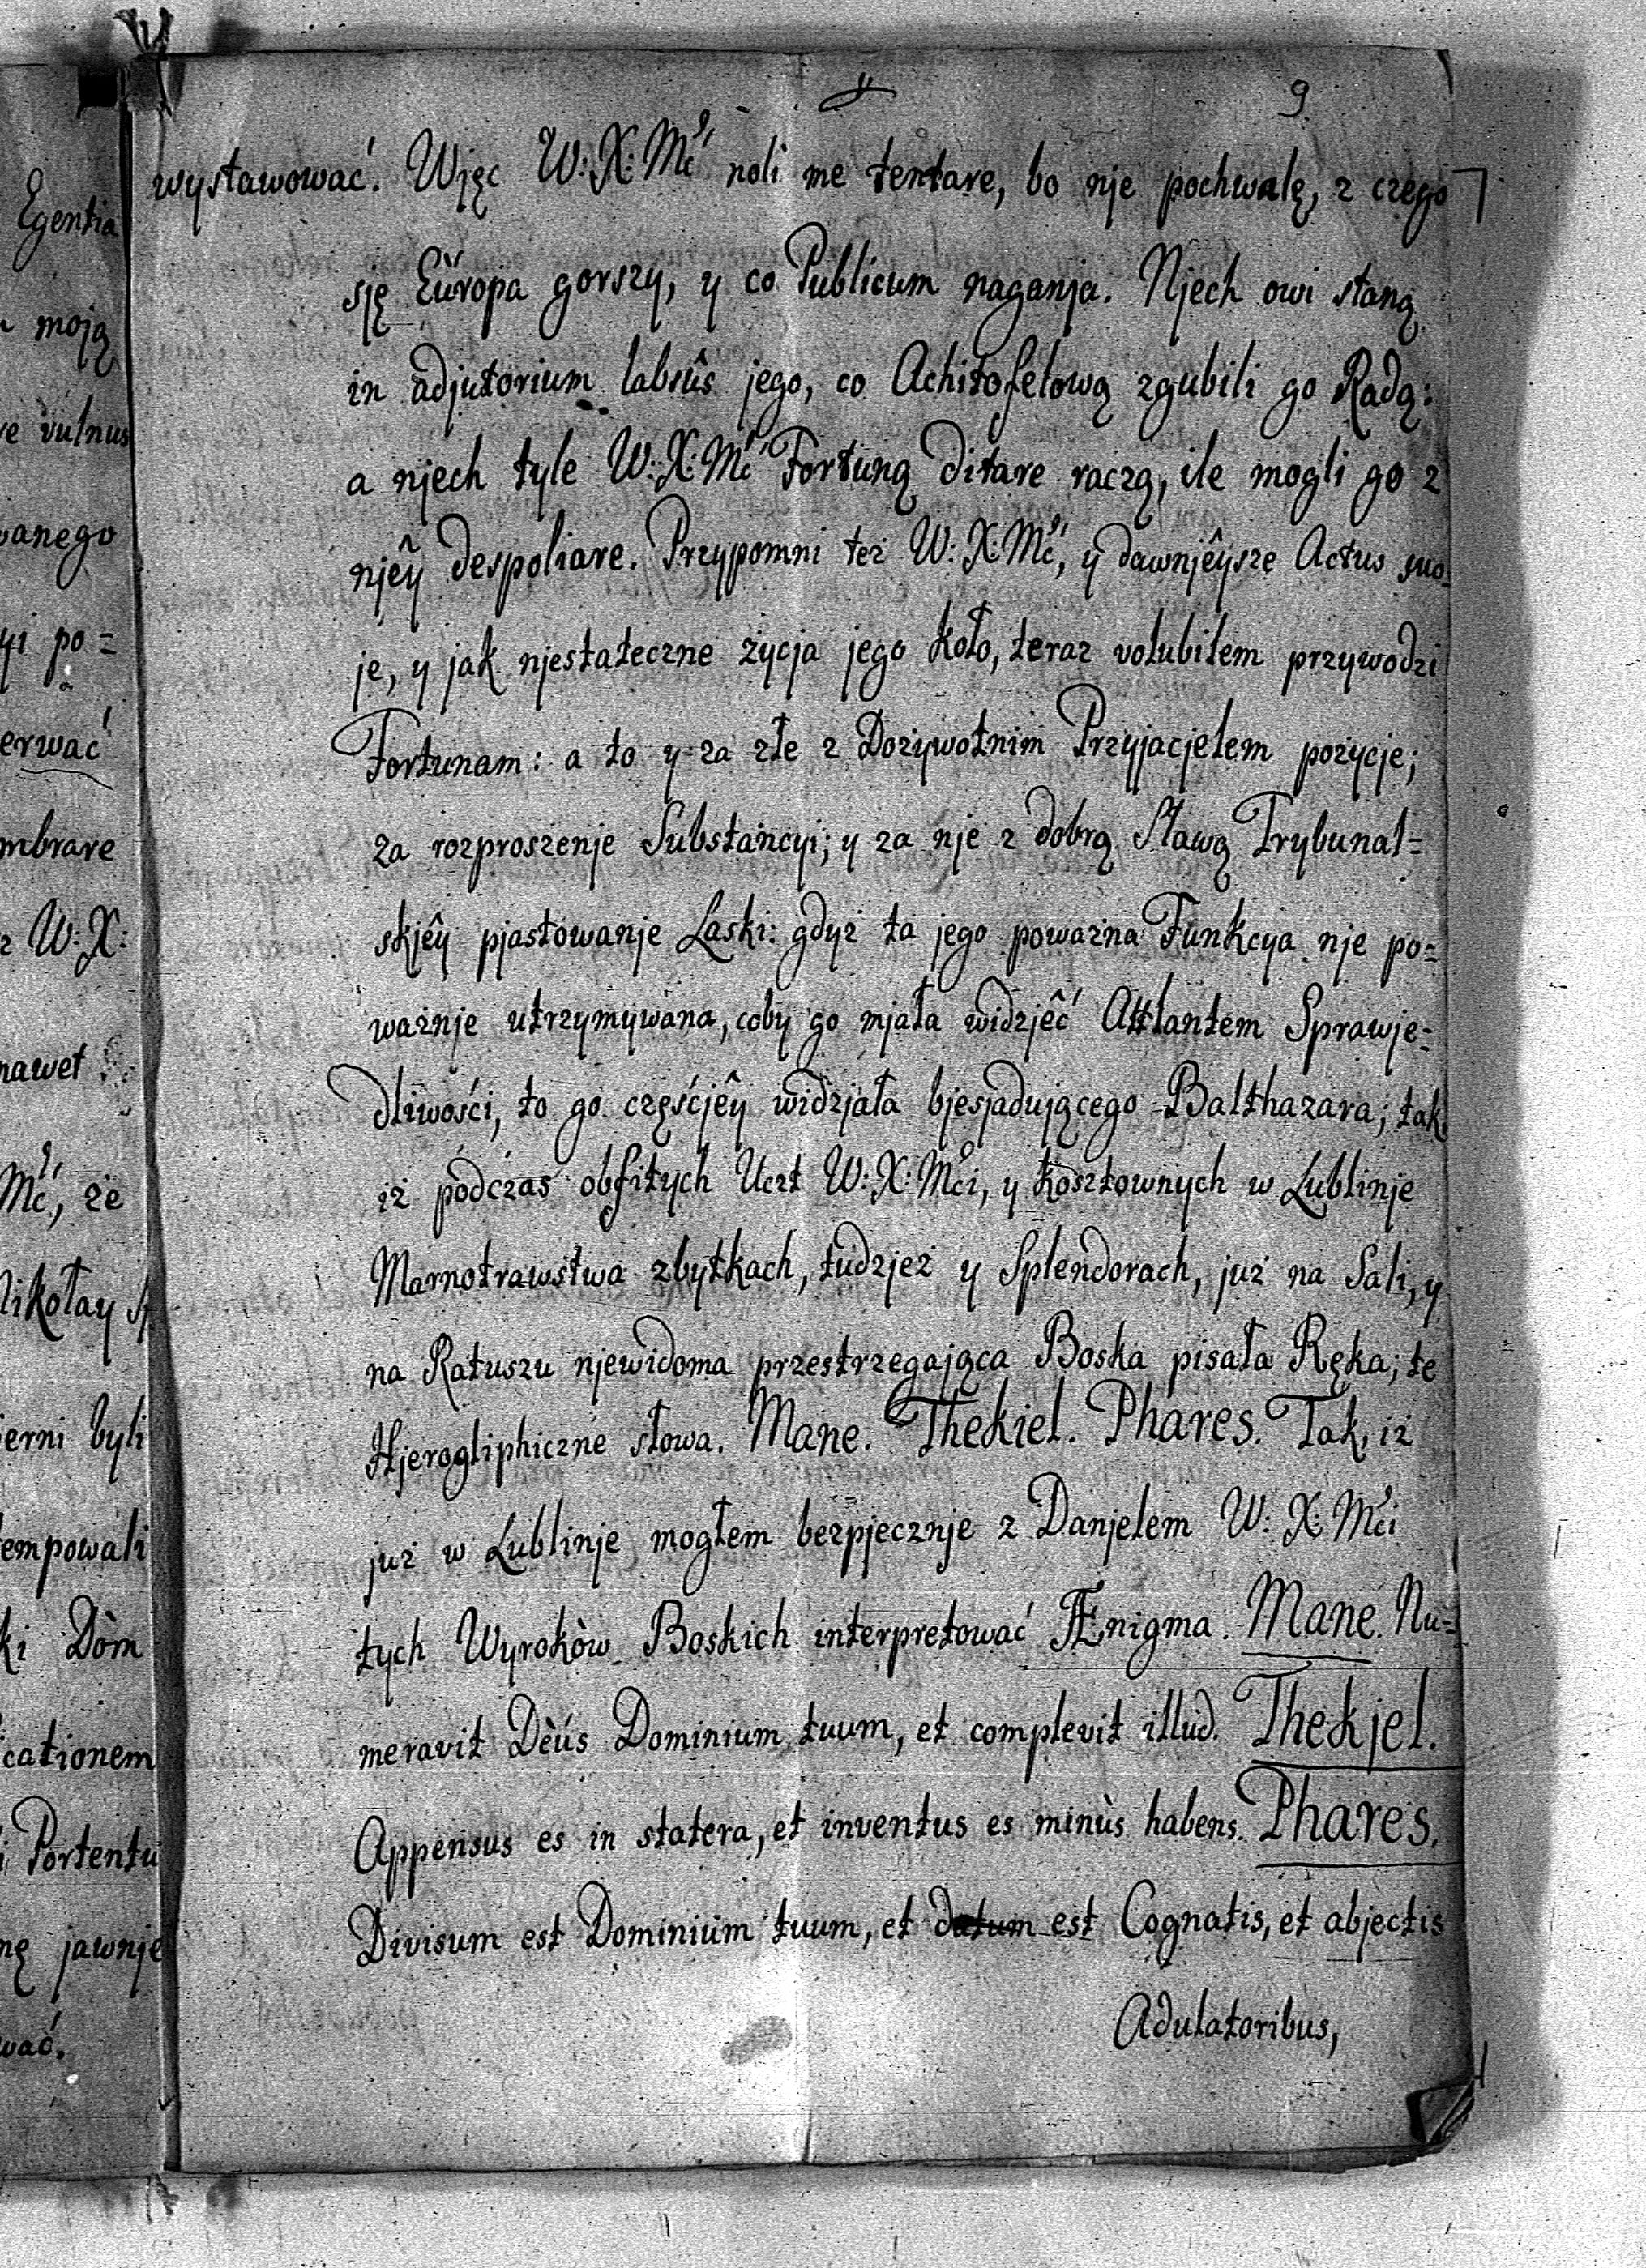 9
Egentia
moją
vulnus
wanego
po=
erwać
mbrare
W: X:
nawet
Mć, że
Nikołay
erni byli
tempowali
ki Dòm
cationem
Portentu
jawnje
wać.
wystawować. Wjęc W: X: Mć noli me tentare, bo nje pochwalę, z czego
sję Eŭropa gorszy, y co Publicum naganja. Njech owi staną
in adjutorium labsûs jego, co Achitofelową zgubili go Radą:
a njech tyle W: X: Mć Fortuną ditare raczą, ile mogli go z
njêy despoliare. Przypomni też W: X: Mć, y dawnjêysze Actus swo=
je, y jak njestateczne życja jego koło, teraz volubilem przywodzi
Fortunam: a to y za złe z Dożywotnim Przyjacjelem pożycje;
za rozproszenje Substancyi; y za nje z dobrą Sławą Trybunal=
skjêy pjastowanje Laski: gdyż ta jego poważna Funkcya nje po=
ważnje utrzymywana, coby go mjała widzjêć Attlantem Sprawje=
dliwości, to go częśćjêy widzjała bjesjadującego Balthazara; tak,
iż pòdczas obfitych Uczt W: X: Mći, y kosztownych w Lublinje
Marnotrawstwa zbytkach, tudzjeż y Splendorach, już na Sali, y
na Ratuszu njewidoma przestrzegająca Boska pisała Ręka; te
Hjerogliphiczne słowa. Mane. Thekiel. Phares. Tak, iż
już w Lublinje mogłem bezpjecznje z Danjelem W: X: Mći
tych Wyrokòw Boskich interpretować Ænigma. Mane. Nu=
meravit Dèus Dominium tuum, et complevit illud. Thekjel.
Appensus es in statera, et inventus es minùs habens. Phares.
Divisum est Dominium tuum, et datum est Cognatis, et abjectis
Adulatoribus,